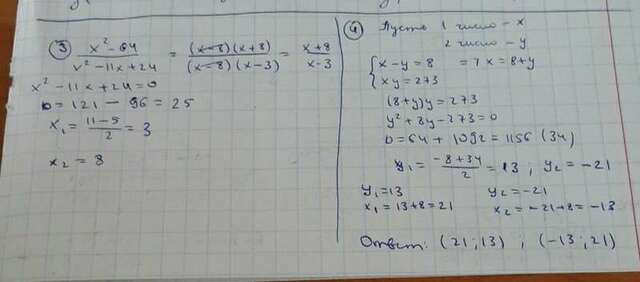 ③ x² - 64 / x² - 11x + 24 = (x-8)(x+8) / (x-8)(x-3) = x+8 / x-3
x² - 11x + 24 = 0
D = 121 - 96 = 25
x₁ = 11-5 / 2 = 3
x₂ = 8
④ Пусть 1 число - x
2 число - y
{ x - y = 8 => x = 8+y
xy = 273
(8+y)y = 273
y² + 8y - 273 = 0
D = 64 + 1092 = 1156 (34)
y₁ = -8+34 / 2 = 13 ; y₂ = -21
y₁ = 13 y₂ = -21
x₁ = 13+8 = 21 x₂ = -21+8 = -13
Ответ: (21; 13) ; (-13; 21)